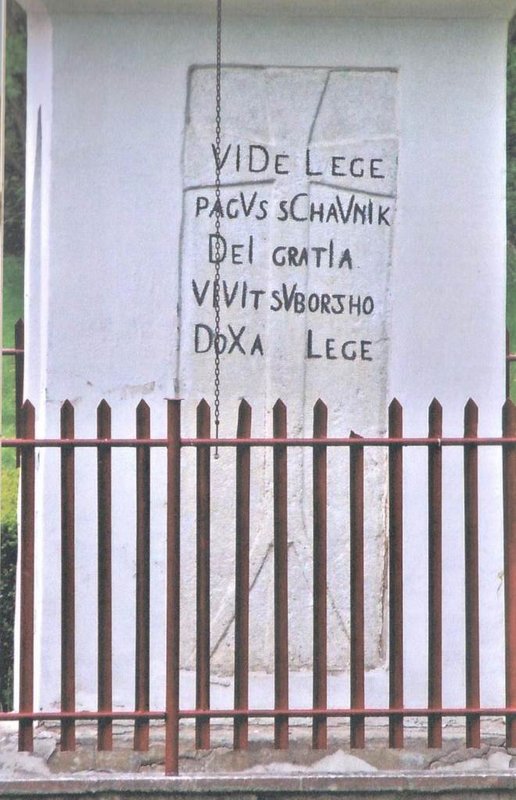 VIDe LeGe
PAGVS sCHaVNIK
DeI GRATIA
VIVIT sVBORJHO
DoXA LeGe